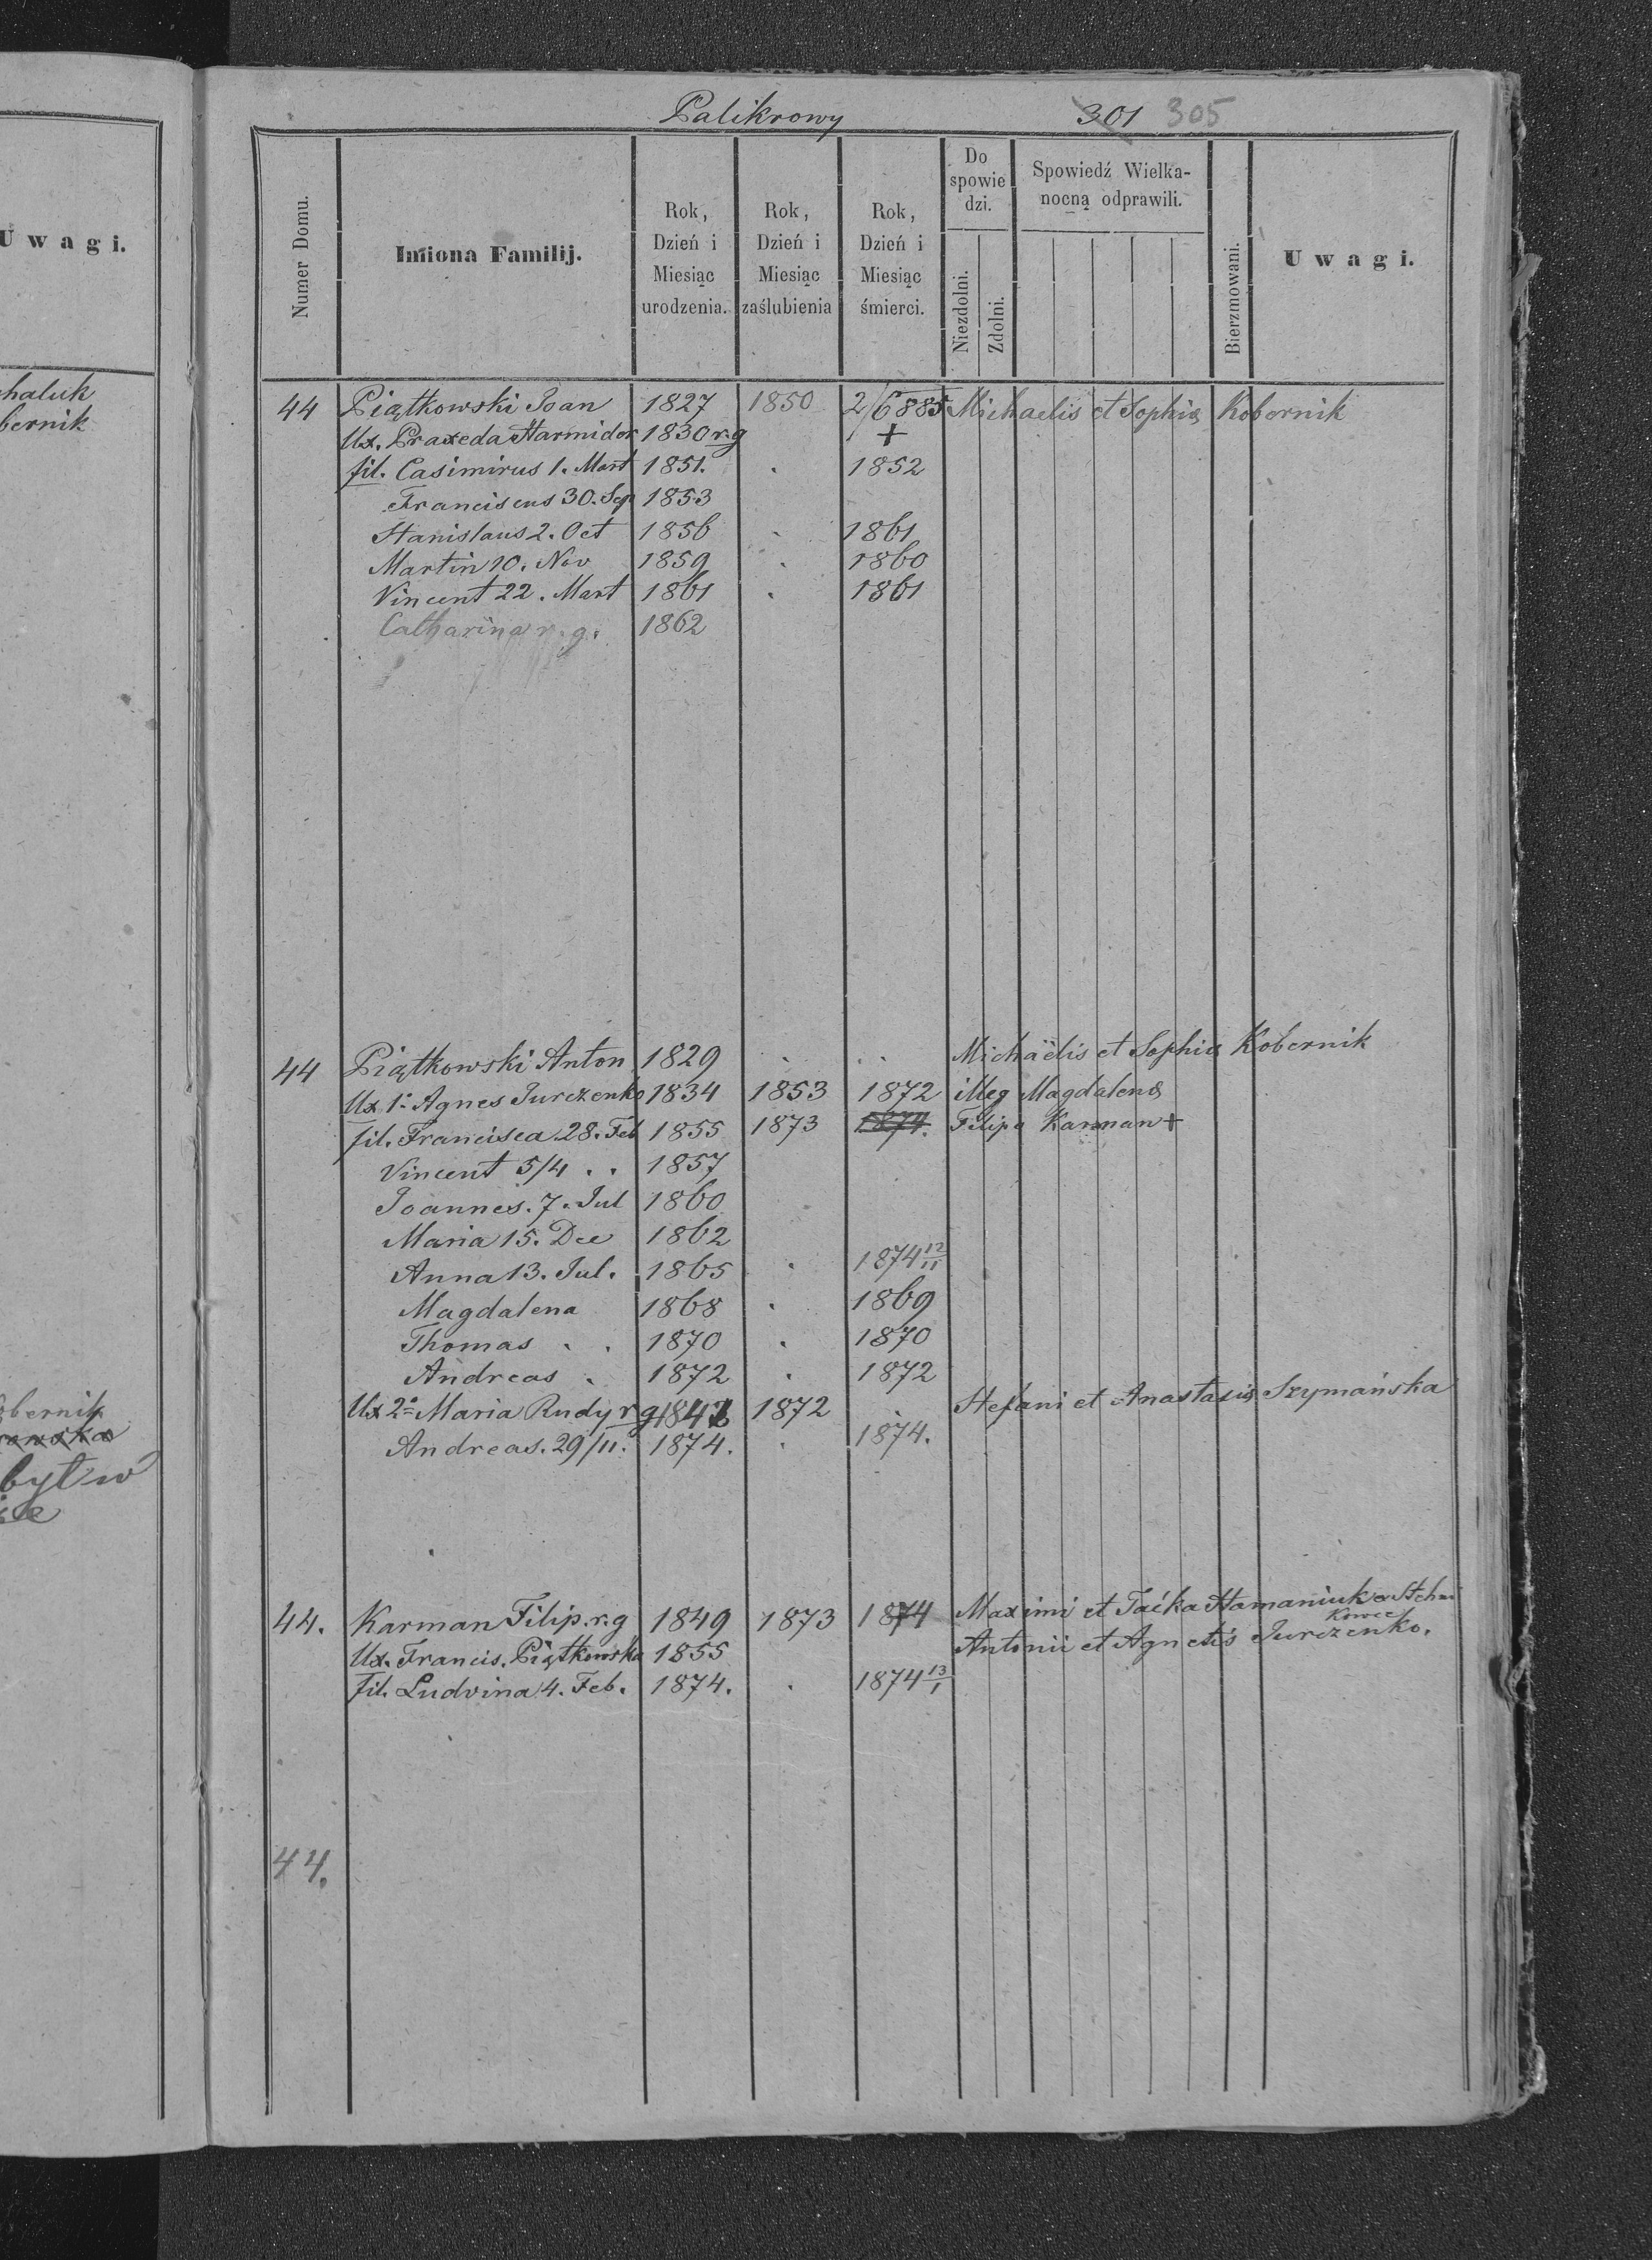 Palikrowy 301 305
Uwagi.
Numer Domu.
Imiona Familij.
Rok, Dzień i Miesiąc urodzenia.
Rok, Dzień i Miesiąc zaślubienia
Rok, Dzień i Miesiąc śmierci.
Do spowie dzi.
Niezdolni.
Zdolni.
Spowiedź Wielka-
nocną odprawili.
Bierzmowani.
Uwagi.
haluk
bernik
44 Piątkowski Joan 1827 1850 2/6 885 Michaelis et Sophia Kobernik
Ux. Praxeda Harmider 1830 r.g +
fil. Casimirus 1. Mart 1851. . 1852
Franciscus 30. Sep 1853
Stanislaus 2. Oct 1856 . 1861
Martin 10. Nov 1859 . 1860
Vincent 22. Mart 1861 . 1861
Catharina r.g. 1862
44 Piątkowski Anton 1829 . . . Michaëlis et Sophia Kobernik
Ux 1a Agnes Jurczenko 1834 1853 1872 illeg Magdalena
fil. Francisca 28. Feb 1855 1873 1874. Filipa Karman +
Vincent 5/4 . . 1857
Joannes. 7. Jul 1860
Maria 15. Dec 1862
Anna 13. Jul. 1865 . 1874 12/11
Magdalena 1868 . 1869
Thomas . . 1870 . 1870
Andreas . 1872 . 1872
Ux 2a Maria Rudy r g 1872 Stefani et Anastasia Szymańska
Andreas. 29/11. 1874. . 1874.
bernik
był w
44. Karman Filip. r.g 1849 1873 1874 Maximi et Taćka Hamaniuk
Ux. Francis. Piątkowska 1855 Antonii et Agnetis Jurczenko.
fil. Ludvina 4. Feb. 1874. . 1874 13/1
44.